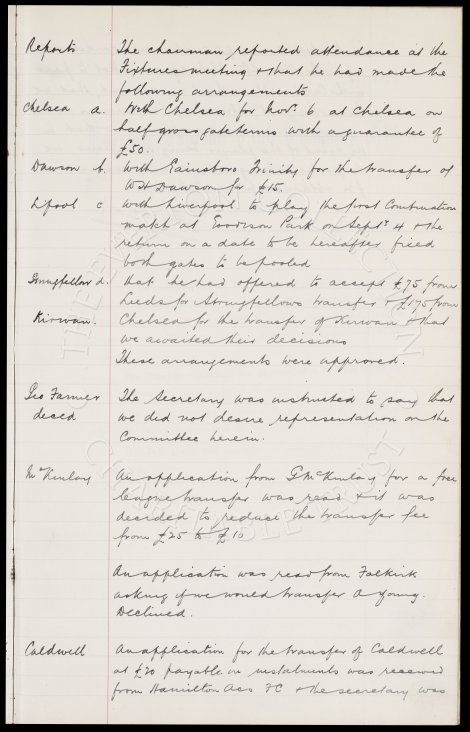 Reports The chairman reported attendance at the
Fixtures meeting & that he had made the
following arrangements
Chelsea a. With Chelsea for Novr 6 at Chelsea on
half gross gate terms with a guarantee of
£50.
Dawson b. With Gainsboro Trinity for the transfer of
W H Dawson for £15.
Lpool c With Liverpool to play the first Combination
match at Goodison Park on Septr 4 & the
return on a date to be hereafter fixed
both gates to be pooled
Strongfellow d. that he had offered to accept £75 from
Leeds for Strongfellows transfer & £175 from
Kirwan. Chelsea for the transfer of Kirwan & that
we awaited their decisions
These arrangements were approved.
Geo Farmer The Secretary was instructed to say that
deced we did not desire representation on the
Committee herein.
McKinlay An application from G McKinlay for a free
league transfer was read & it was
decided to reduce the transfer fee
from £25 to £10
An application was read from Falkirk
asking if we would transfer A Young.
Declined.
Caldwell An application for the transfer of Caldwell
at £20 payable in instalments was received
from Hamilton Acs FC & the secretary was